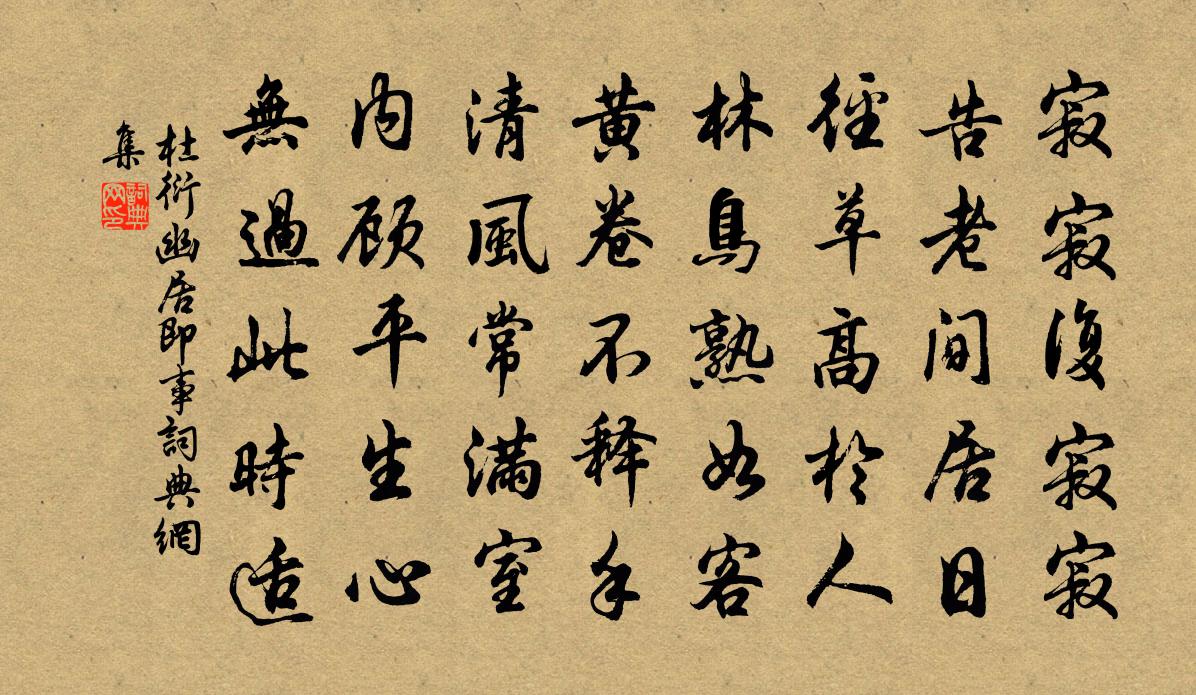 寂寂復寂寂
告老閒居日
徑草高於人
林鳥熟如客
黃卷不釋手
清風常滿室
内顧平生心
無過此時适
杜衍幽居即事詞典網
集
詞典
网印